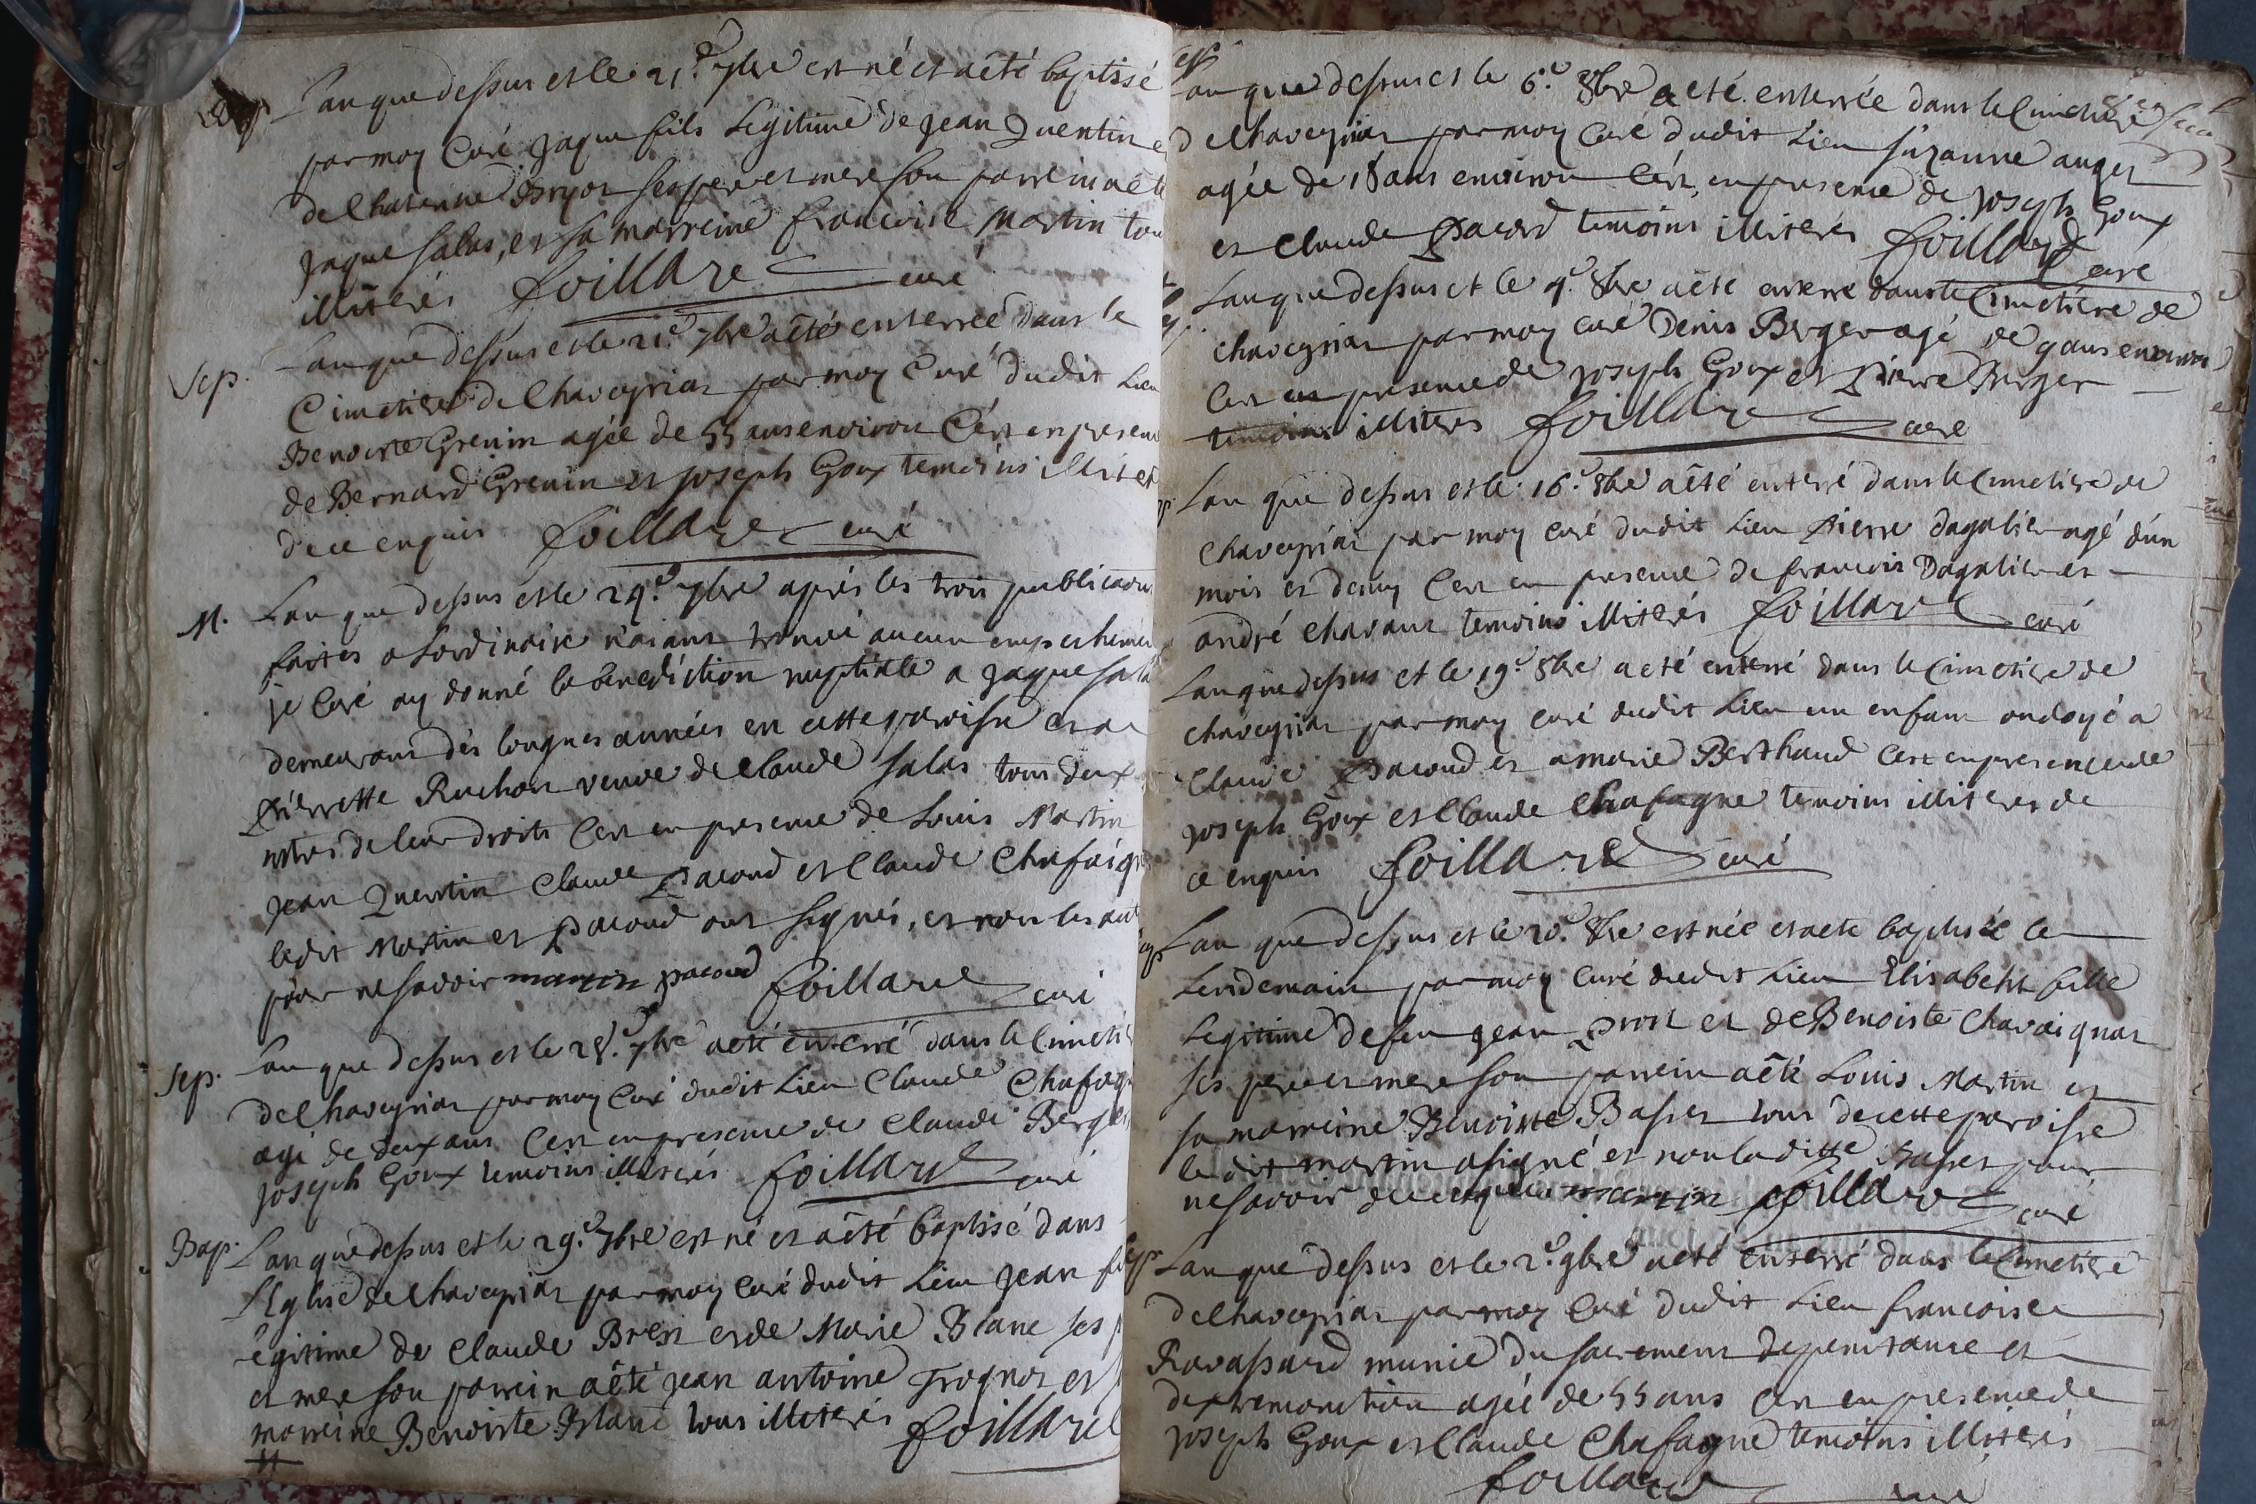 Bap. Lan que dessus et le 21.e 7bre est né et aêté baptissé
par moy Curé Jaque fils Legitime de Jean Quentin et
de Chaterine ses pere et mere son parrein aêté
Jaque Salas, et sa marreine francoise Martin tous
illiterés foillard curé
Sep. Lan que dessus et le 21.e 7bre aêté enterreé dans le
Cimetiere de Chaveyriat par moy Curé dudit Lieu
Benoiste Grenin agée de 55 ans environ C'est en presence
de Bernard Grenin et Joseph Goux temoins illiterés
de ce enquis foillard curé
M. Lan que dessus et le 24.e 7bre aprés les trois publications
faites a Lordinaire n'aiant trouvé aucun empeschement
je Curé ay donné la bénédiction nuptialle a Jaque Salas
demeurant dés longues années en cette paroisse et a
Pierrette Ruchon veuve de Claude Salas tous deux
mtres de leur droits C'est en presence de Louis Martin
Jean Quentin Claude Pacoud et Claude Chafaigne
ledit Martin et Pacoud ont signés, et non les autres
pour ne savoir martin pacoud foillard curé
Sep. Lan que dessus et le 28.e 7bre aeté enterré dans le Cimetiere
de Chaveyriat par moy Curé dudit Lieu Claude Chafagne
agé de deux ans C'est en presence de Claude Berger
Joseph Goux temoins illiterés foillard curé
Bap. Lan que dessus et le 29.e 7bre est né et aêté baptisé dans
L'Eglise de Chaveyriat par moy Curé dudit Lieu Jean fils
Legitime de Claude Bren et de Marie Blanc ses p
et mere son parrein aêté Jean antoine Frognot et
marreine Benoiste Blanc tous illiterés foillard
Lan que dessus et le 6.e 8bre a eté enterrée dans le Cimetiere
de Chaveyriat par moy Curé dudit Lieu suzanne auger
agée de 18 ans environ C'est en presence de Joseph Goux
et Claude Pacoud temoins illiterés foillard curé
Lan que dessus et le 9.e 8bre aêté enterré dans le Cimetiere de
Chaveyriat par moy curé Denis Berger agé de 9 ans environ
C'est en presence de Joseph Goux et Pierre Berger
temoins illiteres foillard curé
Lan que dessus et le 16.e 8bre aêté enterré dans le Cimetiere de
Chaveyriat par moy curé dudit Lieu Pierre Dagalier agé d'un
mois et demy C'est en presence de francois Dagalier et
andré Chavant temoins illiterés foillard curé
Lan que dessus et le 19.e 8bre a eté enterré dans le Cimetiere de
Chaveyriat par moy curé dudit Lieu un enfant ondoyé a
Claude Pacoud et a marie Berthaud C'est en presence de
Joseph Goux et Claude Chafagne temoins illiterés de
ce enquis foillard curé
Lan que dessus et le 20.e 8bre est née et aeté baptisée le
Lendemain par moy Curé dudit Lieu Elisabeht fille
Legitime de feu Jean Prost et de Benoiste Chavaignat
ses pere et mere son parrein aêté Louis Martin et
sa marreine Benoiste Basset tous de cette paroisse
le dit martin a signé et non la ditte Basset pour
ne savoir de ce enquise martin foillard curé
Lan que dessus et le 2.e 9bre aeté enterré dans le Cimetiere
de Chaveyriat par moy Curé dudit Lieu francoise
Ravassard munie du sacrement de penitance et
dextremonction agée de 55 ans C'est en presence de
Joseph Goux et Claude Chafagne temoins illiterés
foillard curé